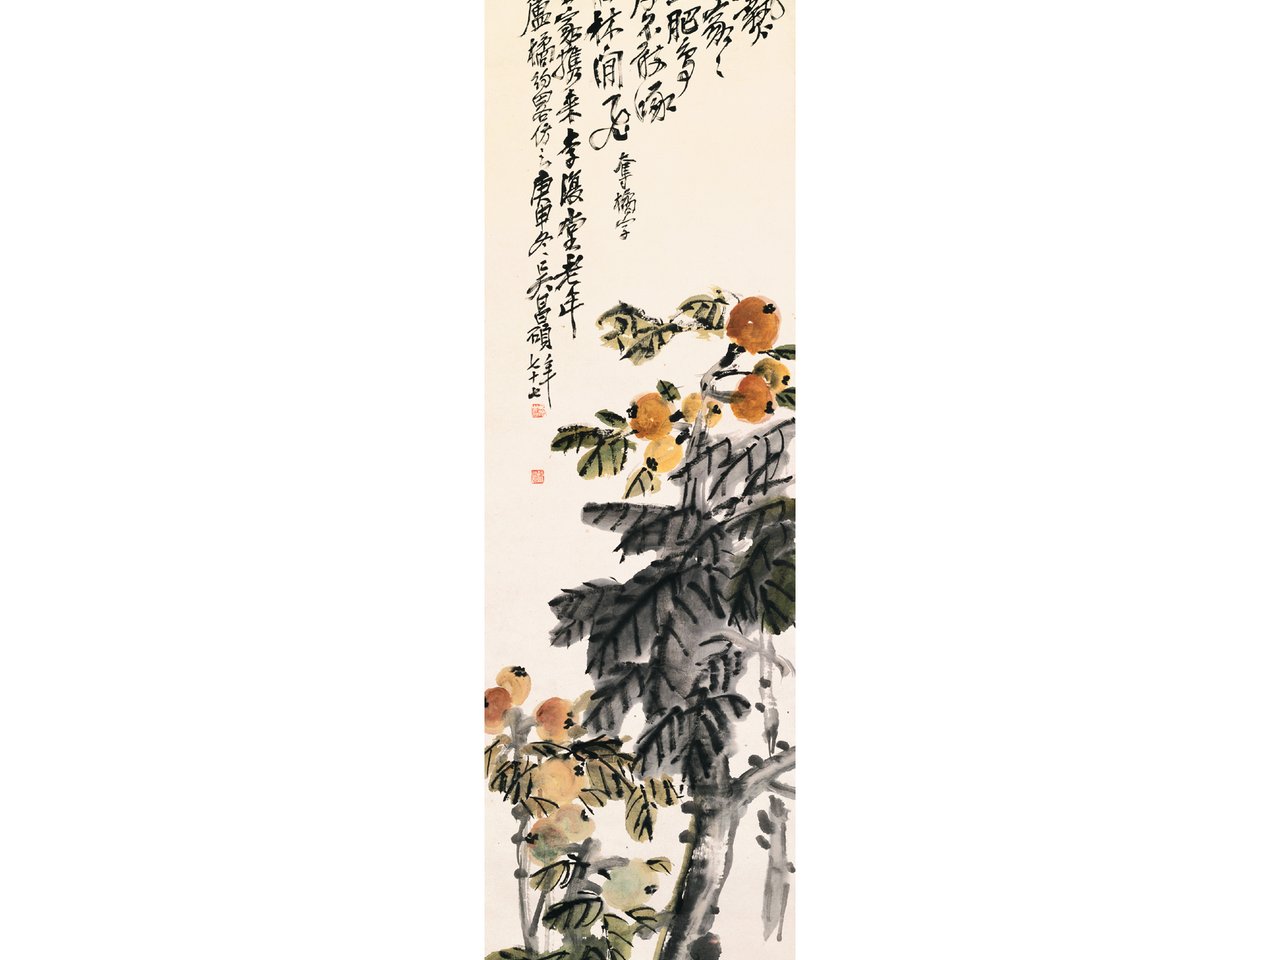 熱
家々
肥鳥
不敢啄
林間飛
奪橘字
家攜來李復堂老年
盧橘約畧仿之庚申冬吳昌碩年七十七